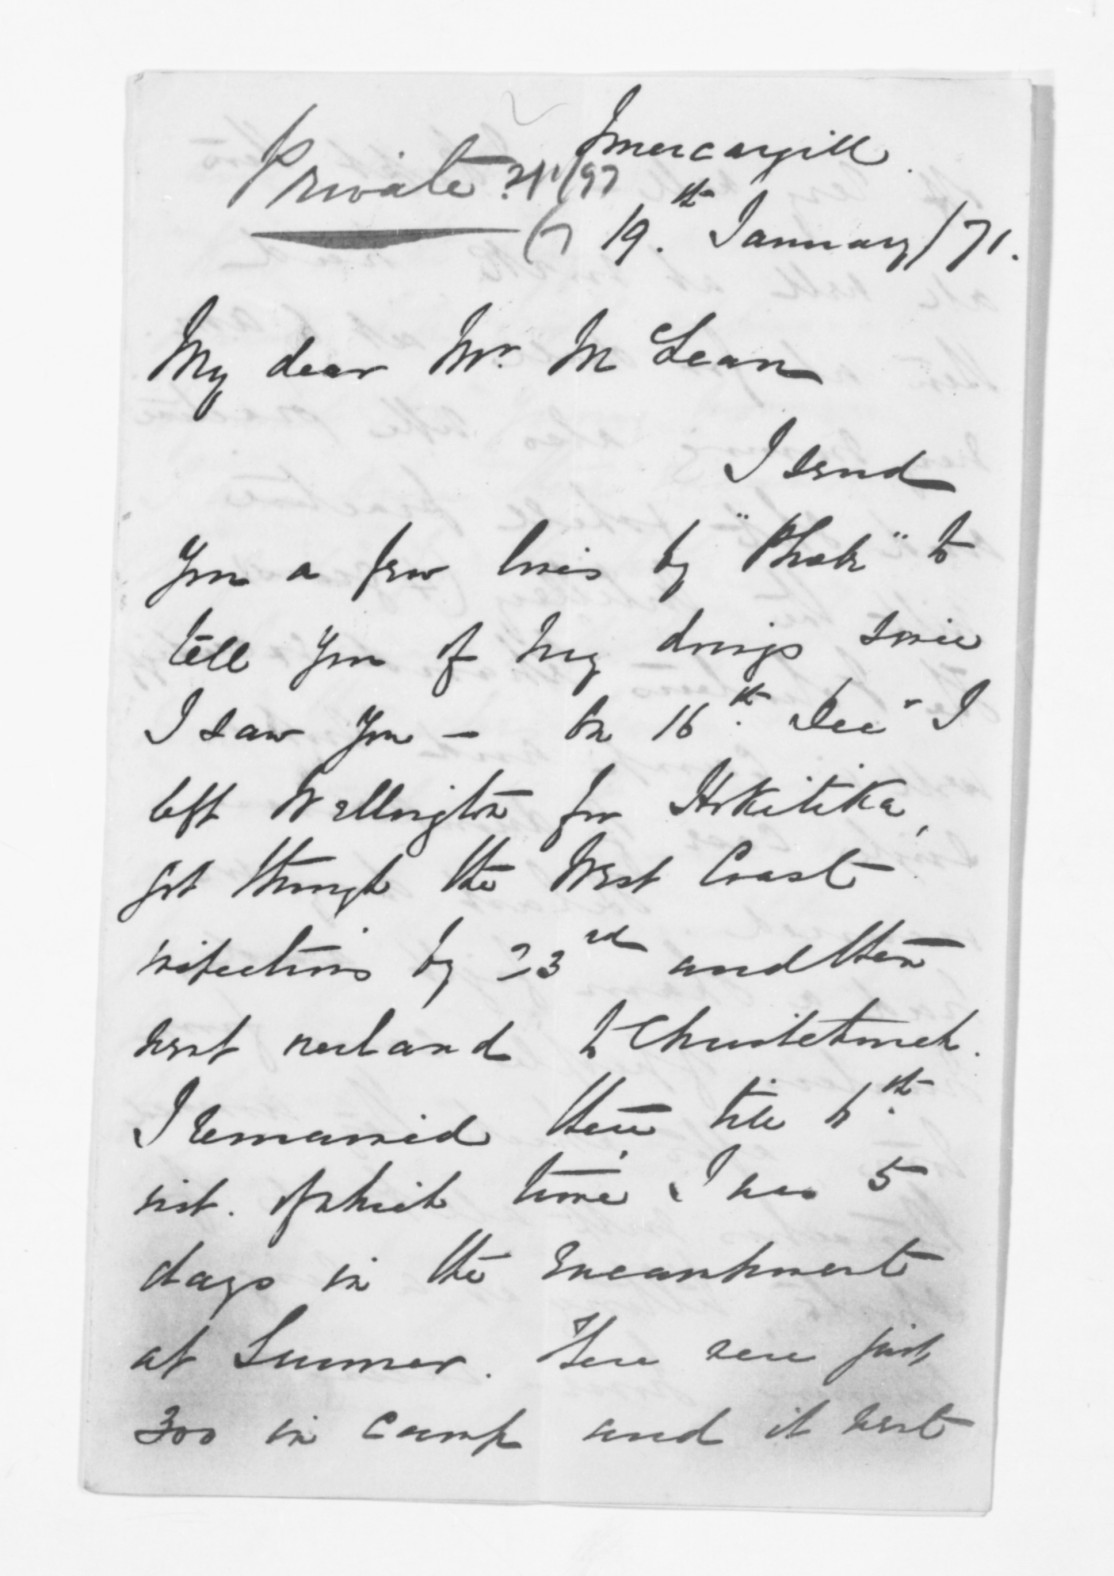 Invercargill.
Private.
19th January/71.
My dear Mr. McLean
I send
you a few lines by "Phœbe" to
tell you of my doings since
I saw you — On 16th Decr I
left Wellington for Hokitika,
got through the West Coast
inspections by 23rd and then
went overland to Christchurch.
I remained there till 6th
inst. of which time, I was 5
days in the Encampment
at Sumner. There were just
300 in camp and it went